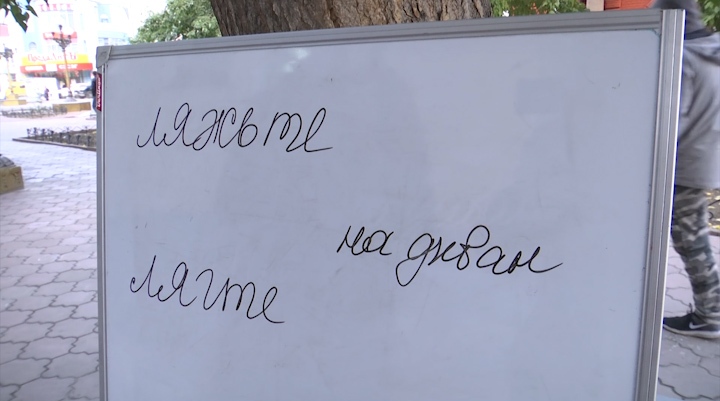 ляжьте
на диван
лягте